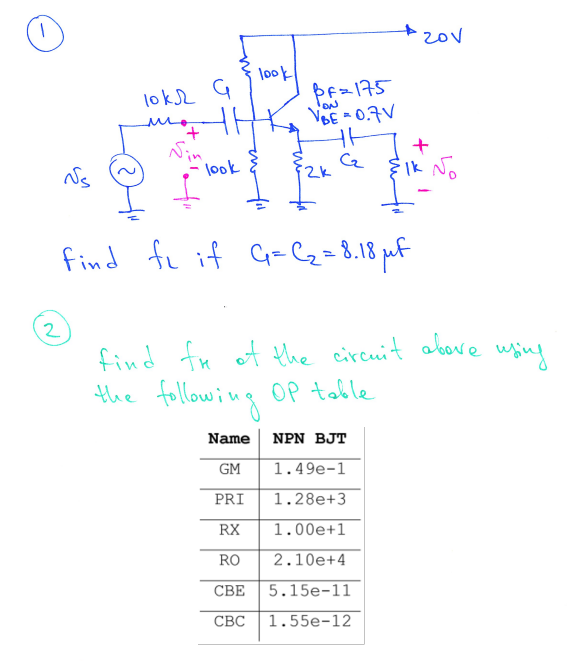 1
20V
100k
10kΩ
C1
βF=175
VBE ON = 0.7V
+
Vin
-
100k
2k
C2
1k
+
Vo
-
Vs
find fL if C1=C2=8.18 μf
2
find fH of the circuit above using
the following OP table
Name NPN BJT
GM 1.49e-1
PRI 1.28e+3
RX 1.00e+1
RO 2.10e+4
CBE 5.15e-11
CBC 1.55e-12